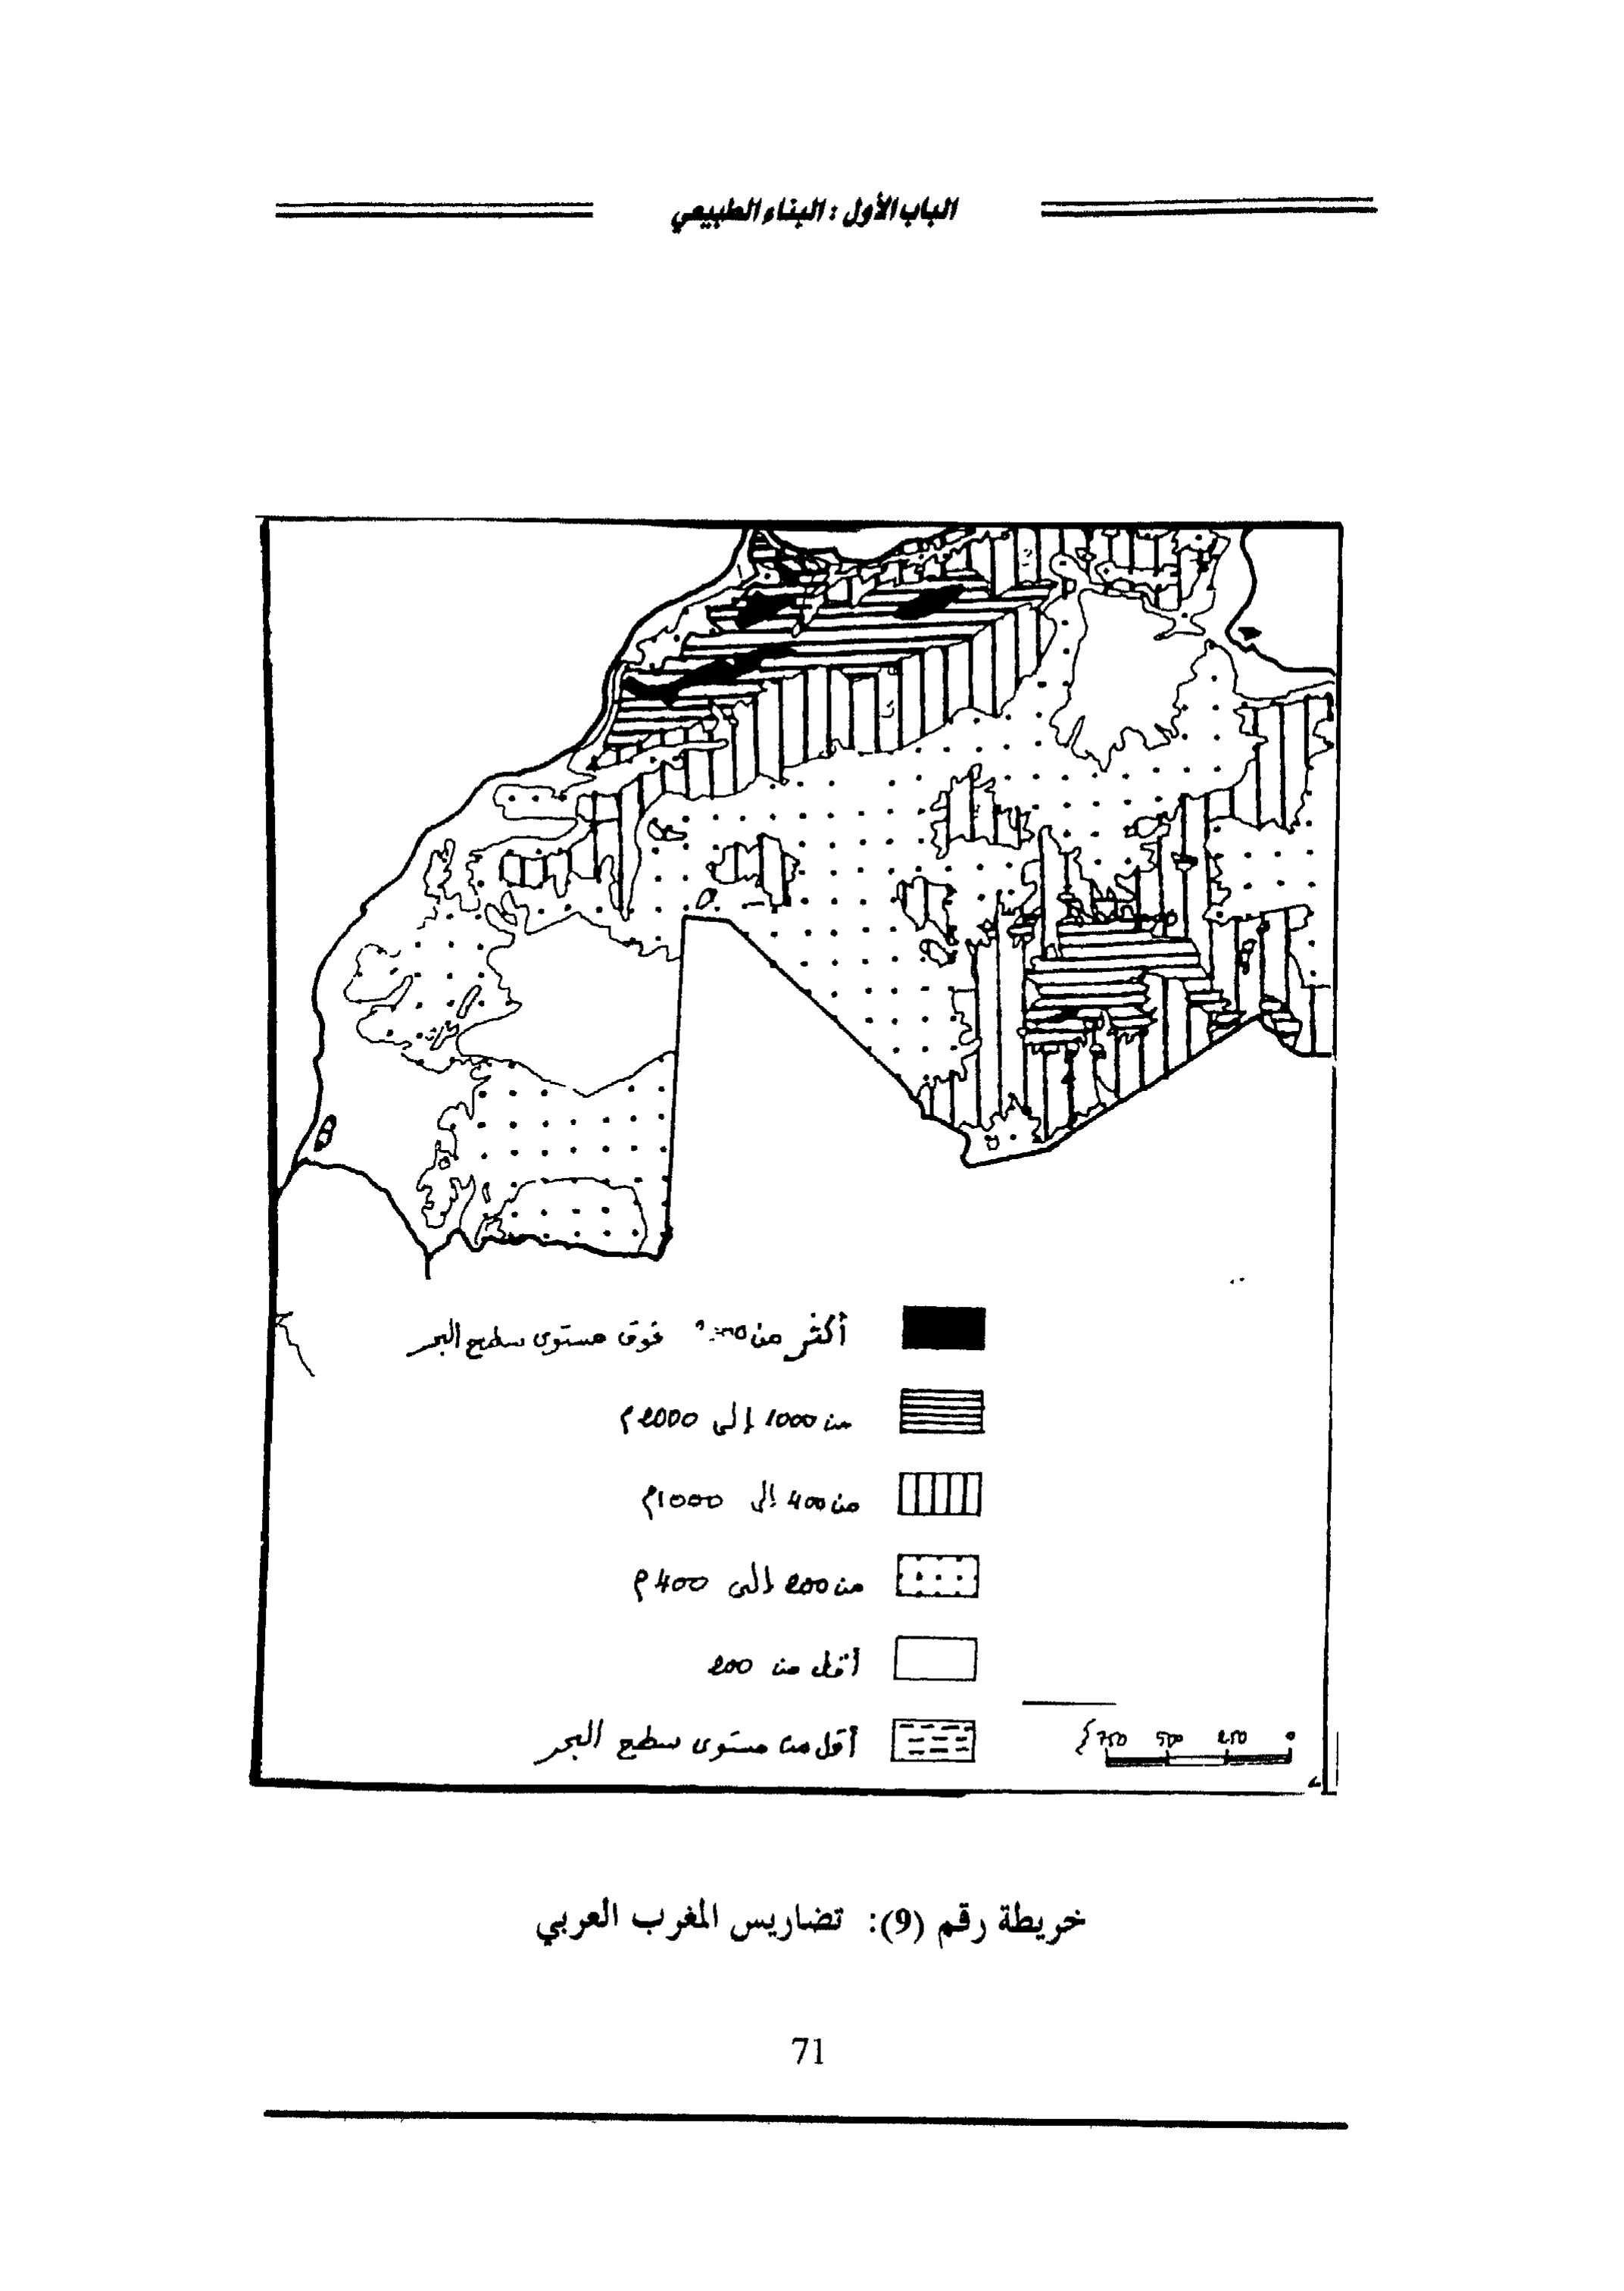 الباب الأول : البناء الطبيعي
أكثر من فوق مستوى سطح البحر
من 1000 إلى 2000م
من 400 إلى 1000م
من 200 إلى 400م
أقل من 200
أقل من مستوى سطح البحر
750 500 250 0
خريطة رقم (9): تضاريس المغرب العربي
71